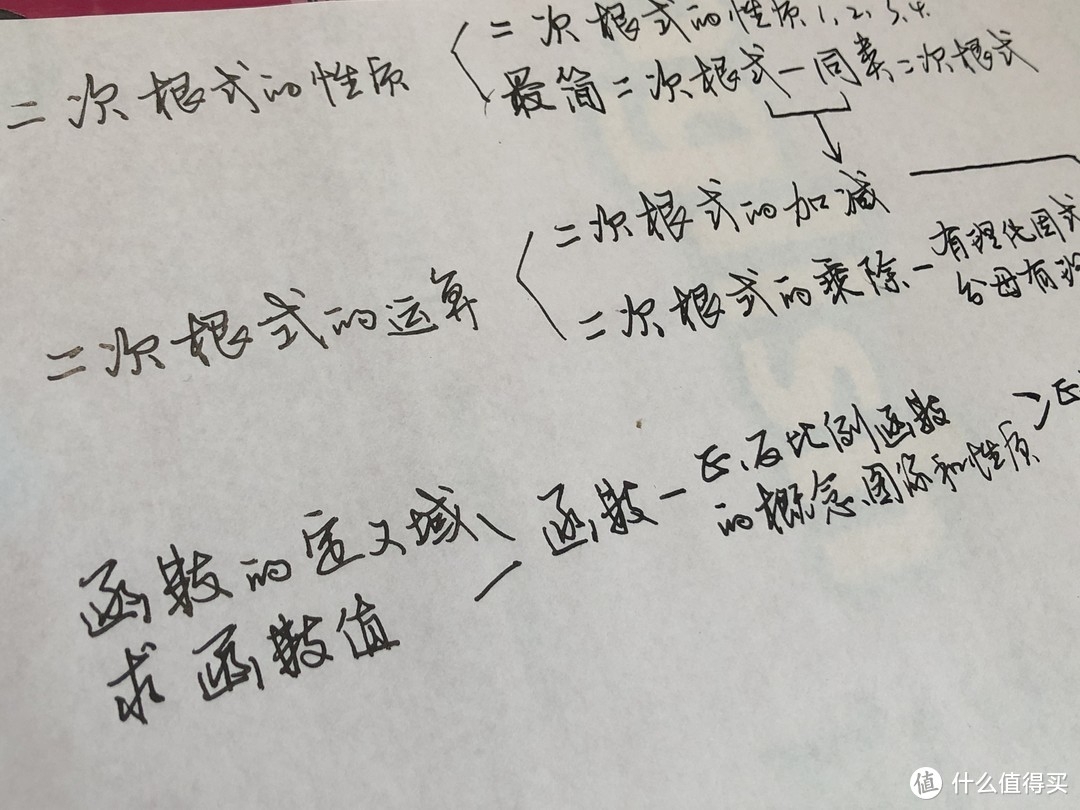 二次根式的性质
二次根式的性质1,2,3,4.
最简二次根式—同类二次根式
二次根式的运算
二次根式的加减
二次根式的乘除—有理化因式
分母有理
函数的定义域、
求函数值
函数—正、反比例函数
的概念图像和性质
值 什么值得买